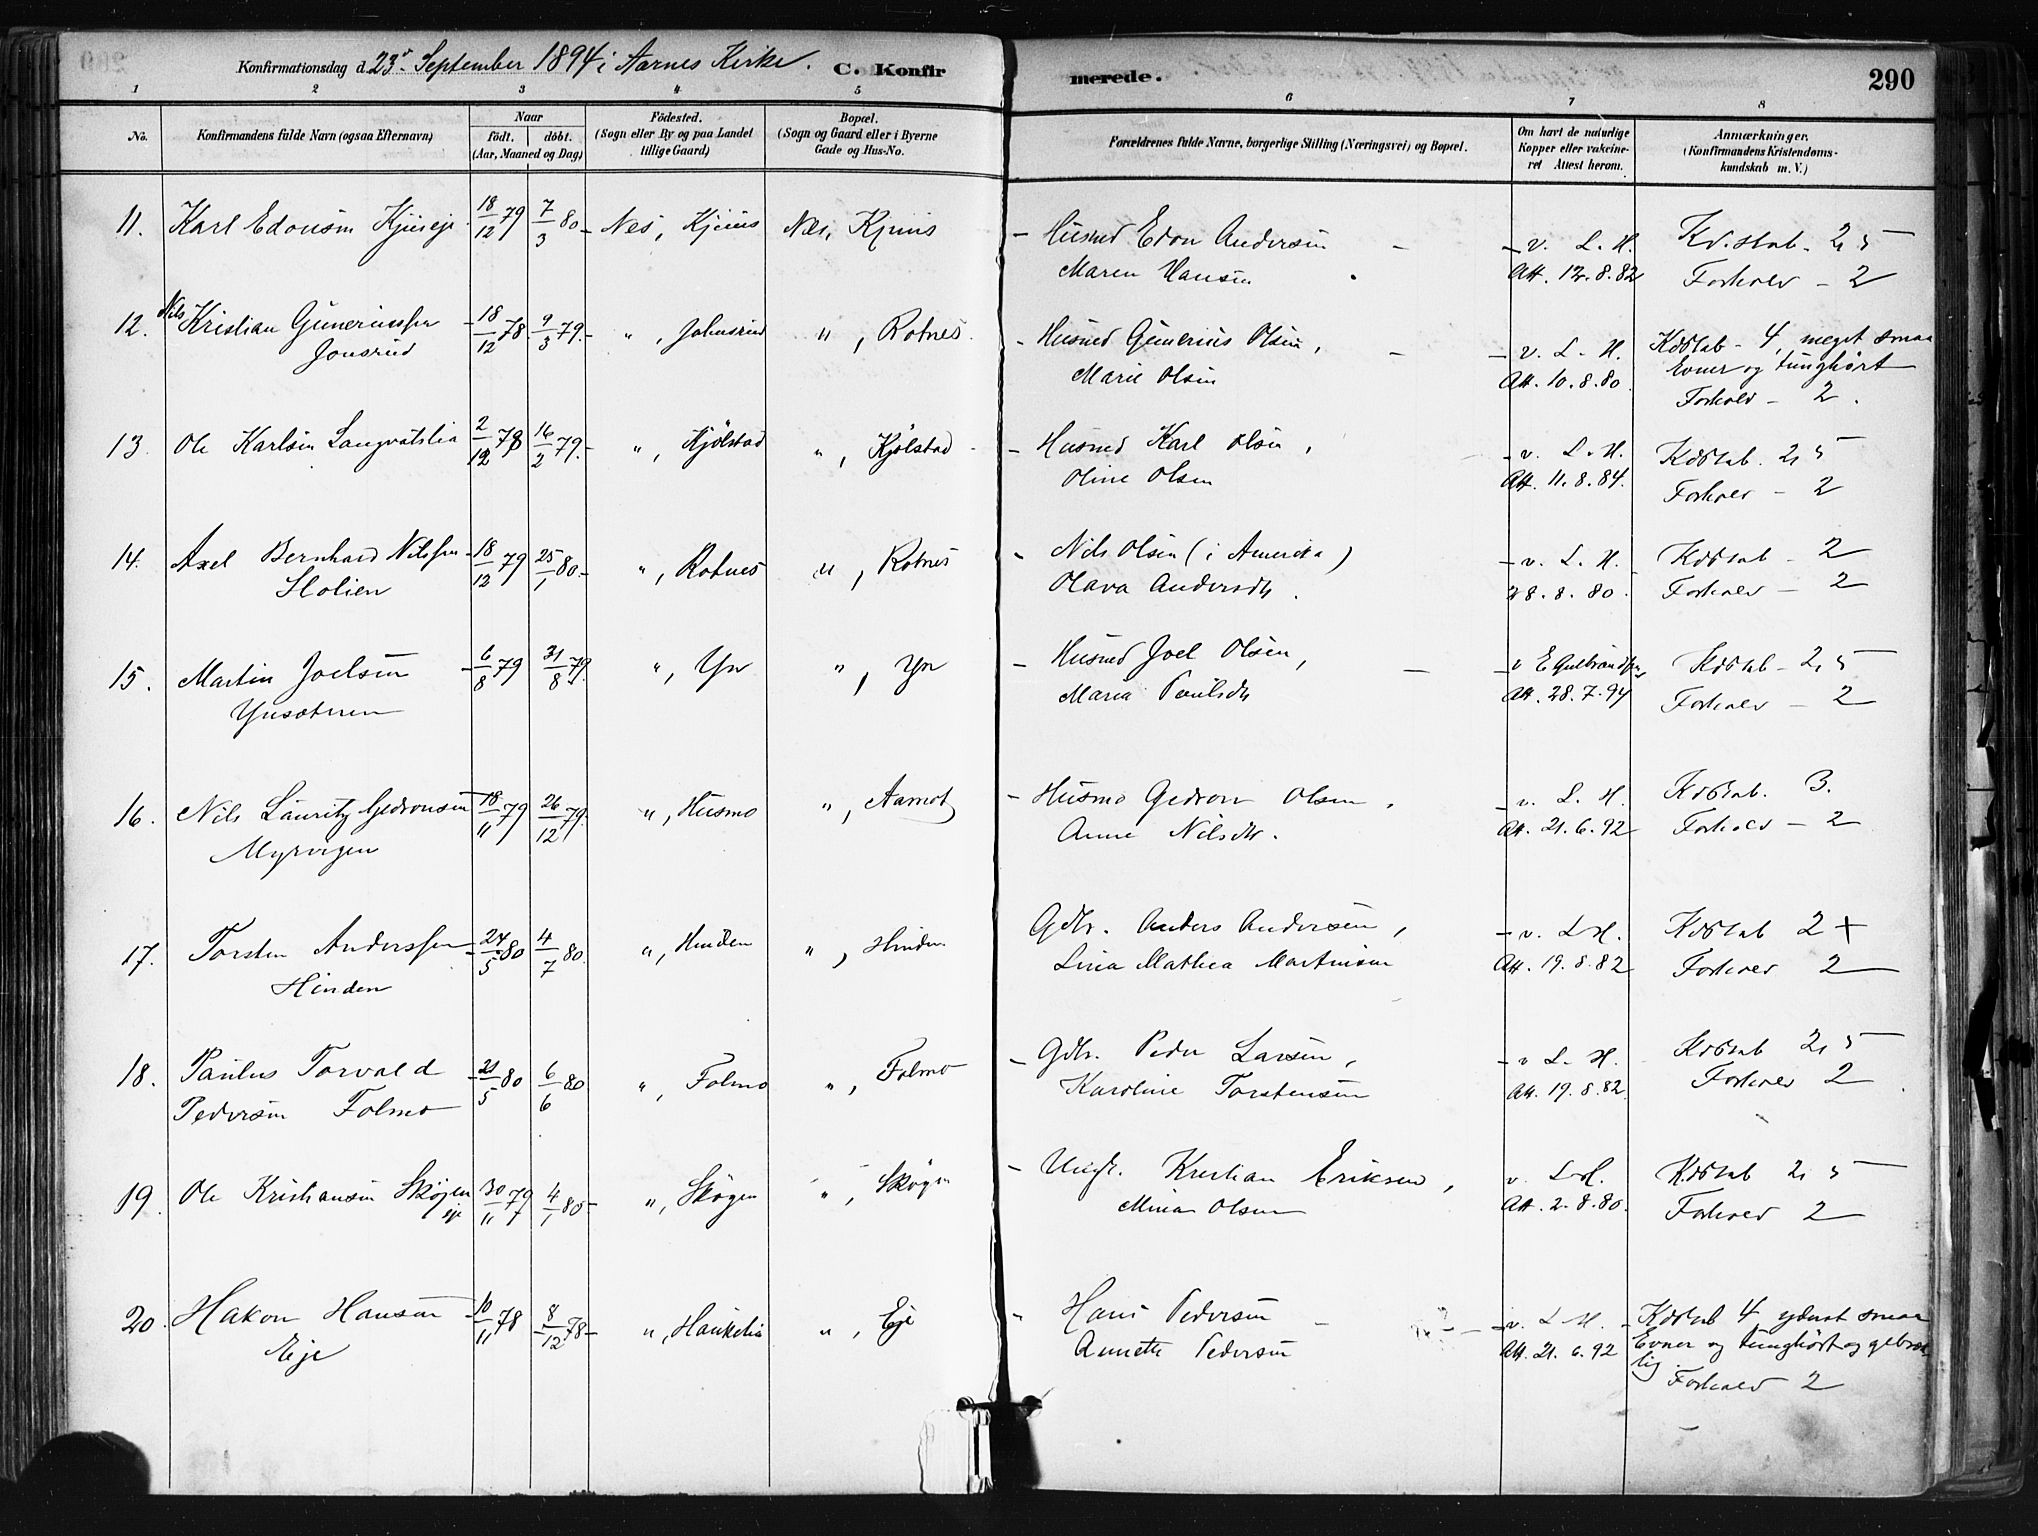 Konfirmationsdag d. 23d September 1894 i Aarnes Kirke. C. Konfirmerede. 290
1 2 3 4 5 6 7 8
No. Konfirmandens fulde Navn (ogsaa Efternavn) Naar født. døbt. (Aar, Maaned og Dag) Fødested. (Sogn eller By og paa Landet tillige Gaard) Bopæl. (Sogn og Gaard eller i Byerne Gade og Hus-No. Forældrenes fulde Navne, borgerlige Stilling (Næringsvei) og Bopæl. Om havt de naturlige Kopper eller vakcineret Attest herom. Anmærkninger. (Konfirmandens Kristendomskundskab m. V.)
11. Karl Edonsen 18/12 79 7/3 80 Nes, Nes, Husmd Edon Andersen v. L. H. Kd.skab - 2,5
Maren Hansen Att. 12.8.82 Forhold - 2
12. Nils Kristian Guneriussen 18/12 78 9/3 79 ", Johnsrud ", Rotnes Husmd Gunerius Olsen, v. L. H. Kdskab - 4, meget smaa
Jonsrud Marie Olsen Att. 10.8.80 Evner og tunghørt
Forhold - 2.
13. Ole Karlsen Langvatslia 2/12 78 16/2 79 ", Kjølstad ", Kjølstad Husmd Karl Olsen, v. L. H. Kdskab. 2,5
Oline Olsen Att. 11.8.84. Forhold - 2
14. Axel Bernhard Nilssen 18/12 79 25/1 80 ", Rotnes ", Rotnes Nils Olsen (i Amerika) v. L. H. Kdskab - 2
Holien Olava Andersdtr. 28.8.80. Forhold - 2
15. Martin Joelsen 6/8 79 31/8 79 ", Yn ", Yn Husmd Joel Olsen, v E Gulbrandsen Kdskab - 2,5
Ynsæteren Maria Paulsdtr Att. 28.7.94 Forhold - 2
16. Nils Lauritz Gedeonsen 18/11 79 26/12 79 ", Husmo ", Aamot Husmd Gedeon Olsen, v. L. H. Kdskab. 3.
Myrvigen Anne Nilsdtr. Att. 21.6.92 Forhold - 2
17. Torsten Anderssen 24/5 80 4/7 80 ", Hinden ", Hinden Gdbr. Anders Andersen, v. L H. Kdskab 2 +
Hinden Lina Mathea Martinsen Att. 19.8.82 Forhold 2
18. Paulus Torvald 21/5 80 6/6 80 ", Folmo ", Folmo Gdbr. Peder Larsen, v L. H. Kdskab 2,5
Pedersen Folmo Karoline Torstensen Att. 19.8.82 Forhold 2
19. Ole Kristiansen Skøgen 30/11 79 4/1 80 ", Skøgen ", Skøgen Kristian Eriksen, v. L. H. Kdskab 2,5
eje Mina Olsen Att. 2.8.80. Forhold 2
20. Hakon Hansen 10/11 78 8/12 78 ", Haukelia ", Eje Hans Pedersen v. L. H. Kdskab 4 yderst smaa
Eje Annette Pedersen Att. 21.6.92 Evner og tunghørt og gebrækkelig
Forhold 2